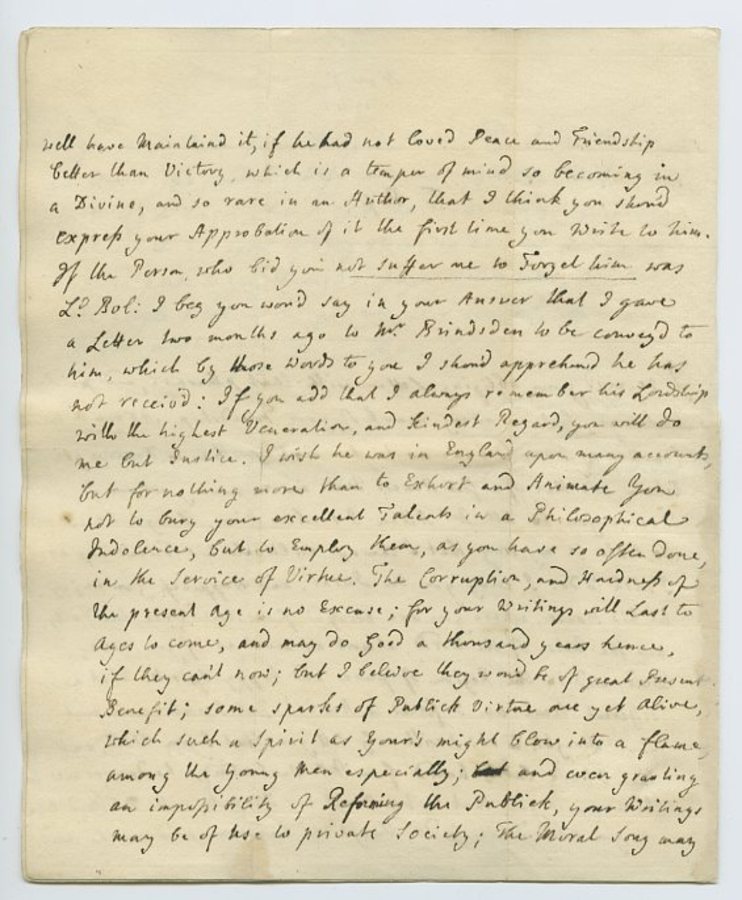 well have Maintaind it, if he had not loved Peace and Friendship
better than Victory, which is a temper of mind so becoming in
a Divine, and so rare in an Author, that I think you shoud
express your Approbation of it the first time you Write to him.
If the Person, who bid you not suffer me to Forget him was
Ld. Bol: I beg you woud say in your Answer that I gave
a Letter two months ago to Mr. Brindsden to be convey'd to
him, which by those Words to you I shoud apprehend he has
not receivd: If you add that I always remember his Lordship
with the highest Veneration, and kindest Regard, you will do
me but Justice. I wish he was in England upon many accounts,
but for nothing more than to Exhort and Animate You
not to bury your excellent Talents in a Philosophical
Indolence, but to Employ them, as you have so often done,
in the Service of Virtue. The Corruption, and Hardness of
the present Age is no Excuse; for your Writings will Last to
Ages to come, and may do Good a thousand years hence,
if they can't now; but I beleive they woud be of great Present
Benefit; some sparks of Publick Virtue are yet Alive,
which such a Spirit as Your's might blow into a flame,
among the Young Men especially; and even granting
an impossibility of Reforming the Publick, your Writings
may be of Use to private Society; The Moral Song may